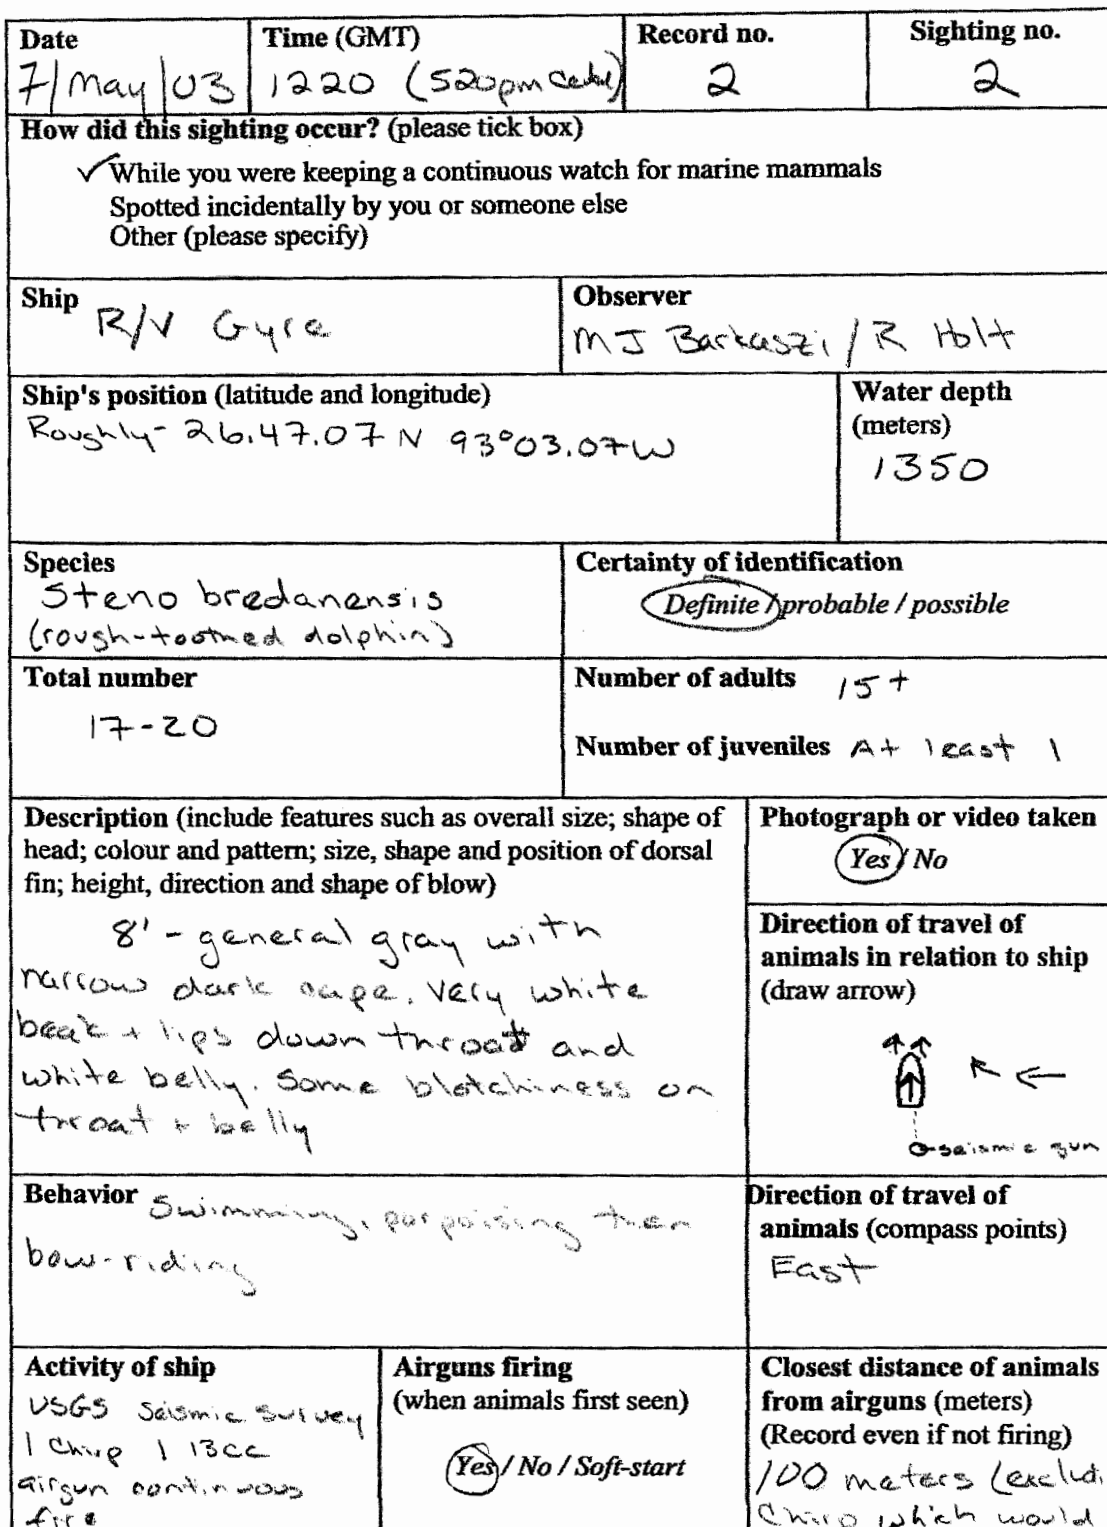 Date
7/May/03
Time (GMT)
1220 (520pm
Record no.
2
Sighting no.
2
How did this sighting occur? (please tick box)
✓ While you were keeping a continuous watch for marine mammals
Spotted incidentally by you or someone else
Other (please specify)
Ship
R/V Gyre
Observer
MJ Barkaszi / R Holt
Ship's position (latitude and longitude)
Roughly - 26.47.07 N 93°03.07W
Water depth
(meters)
1350
Species
Steno bredanensis
(rough-toothed dolphin)
Certainty of identification
Definite / probable / possible
Total number
17-20
Number of adults 15+
Number of juveniles At least 1
Description (include features such as overall size; shape of
head; colour and pattern; size, shape and position of dorsal
fin; height, direction and shape of blow)
8' - general gray with
narrow dark cape. Very white
beak + lips down throat and
white belly. Some blotchiness on
throat + belly
Photograph or video taken
Yes / No
Direction of travel of
animals in relation to ship
(draw arrow)
seismic gun
Behavior Swimming, porpoising then
bow-riding
Direction of travel of
animals (compass points)
East
Activity of ship
USGS Seismic survey
1 Chirp 1 13cc
airgun continuous
fire
Airguns firing
(when animals first seen)
Yes / No / Soft-start
Closest distance of animals
from airguns (meters)
(Record even if not firing)
100 meters (excludi
Chirp which would